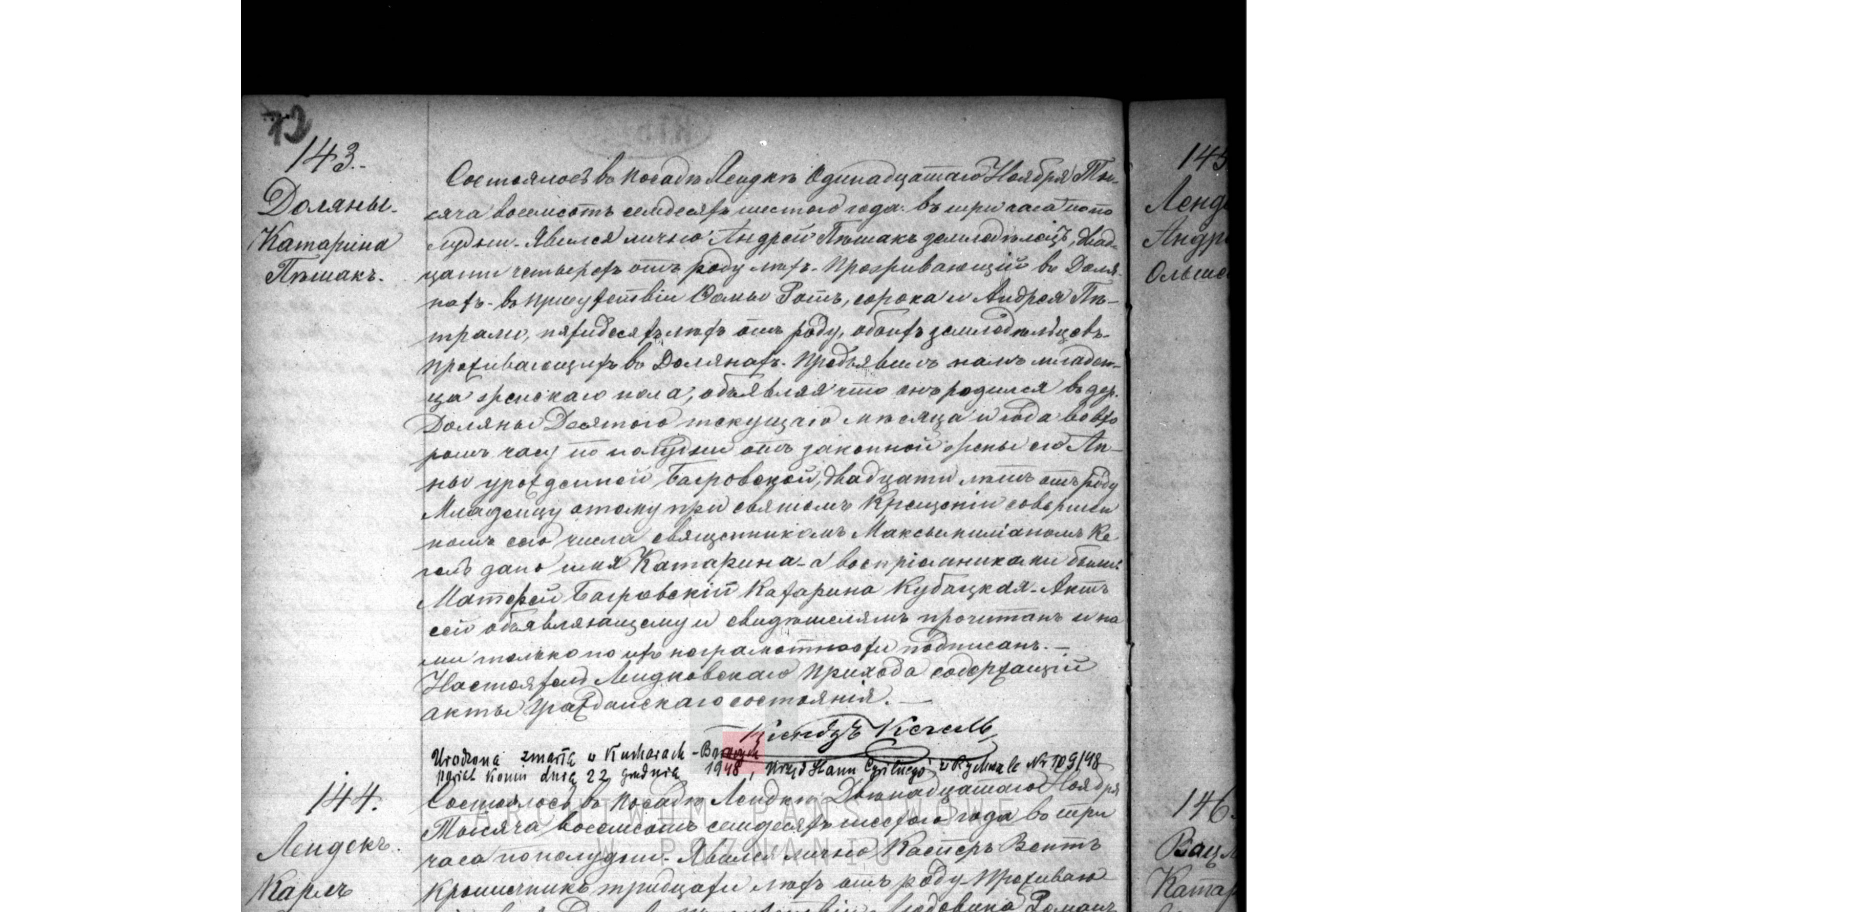 143.
Доляны.
Катарина
Пѣшакъ.
Состоялось въ посадѣ Лендкѣ Одинадцатаго Ноября Ты-
сяча восемсотъ семдесятъ шестого года въ три часа попо
лудни. Явился лично Андрей Пѣшакъ земледѣлецъ, двад-
цати четырехъ отъ роду лѣтъ. Проживающій въ Доля-
нахъ въ присутствіи Фомы Ротъ, сорока и Андрея Пѣ-
лѣтъ отъ роду, обоихъ земледѣльцевъ
проживающихъ въ Долянахъ. Предъявилъ намъ младен-
ца женскаго пола, объявляя что онъ родился въ дер.
Доляны Десятого текущаго мѣсяца и года во вто
ромъ часу по полудни отъ законной жены его Ан-
ны урожденной двадцати лѣтъ отъ роду
Младенцу этому при святомъ Крещеніи совершен
номъ сего числа священникомъ Максымиліаномъ Ке
дано имя Катарина а воспріемниками были
Матфей Катарина Кубацкая. Актъ
сей объявляющему и свидѣтелямъ прочитанъ и на
ми только по ихъ неграмотности подписанъ. —
Настоятель Лендковскаго Прихода содержащій
акты гражданскаго состоянія. —
Ксендзъ
Urodzona zmarła w Kucharach -
powiat Konin dnia 22 grudnia 1948, Urząd Stanu Cywilnego w Nr 109/48
144.
Лендекъ.
Карлъ
Состоялось въ посадѣ Лендкѣ Двѣнадцатаго Ноября
Тысяча восемсотъ семдесятъ шестого года въ три
часа пополудни. Явился лично Касперъ Вентъ
тридцати лѣтъ отъ роду проживаю
Людовика Романъ
145
Ленд
Андр
146.
Вац
Ката
ARCHIWUM PAŃSTWOWE
W POZNANIU